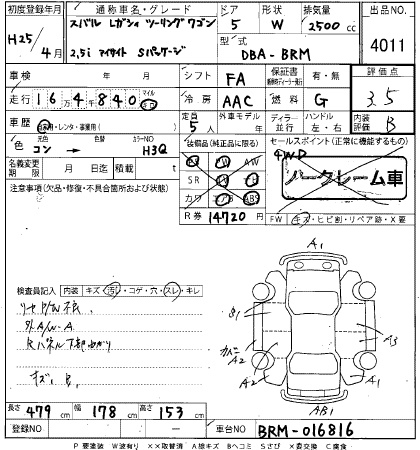 初度登録年月 通称車名・グレード ドア 形状 排気量 出品NO.
H25/4月 スバル レガシィ ツーリングワゴン 5 W 2500cc 4011
2.5i アイサイト Sパッケージ 型式 DBA-BRM
車検 年 月 シフト FA 保証書 有・無 評価点
走行 164840 マイル 冷房 AAC 燃料 G 3.5
車歴 自家用・レンタ・事業用 定員 5人 外車モデル 年 ディーラー 並行 ハンドル 左・右 内装評価 B
色 コン 色替 カラーNO H3Q 装備品(純正品に限る) セールスポイント(正常に機能するもの)
名義変更期限 月 日 迄 積載 t AW 4WD
注意事項(欠品・修復・不具合箇所および状態) SR ナビ パークレーム車
カワ ABS
R券 14720 FW キズ・ヒビ割・リペア跡・X要
検査員記入 内装 キズ・汚・コゲ・穴・スレ・キレ
A1
外A/W-A B1
A3
A2
A2 A1
長さ 479cm 幅 178cm 高さ 153cm AB1
登録NO 車台NO BRM-016816
P要塗装 W波有り ××取替済 A線キズ Bヘコミ Sさび ×要交換 C腐食